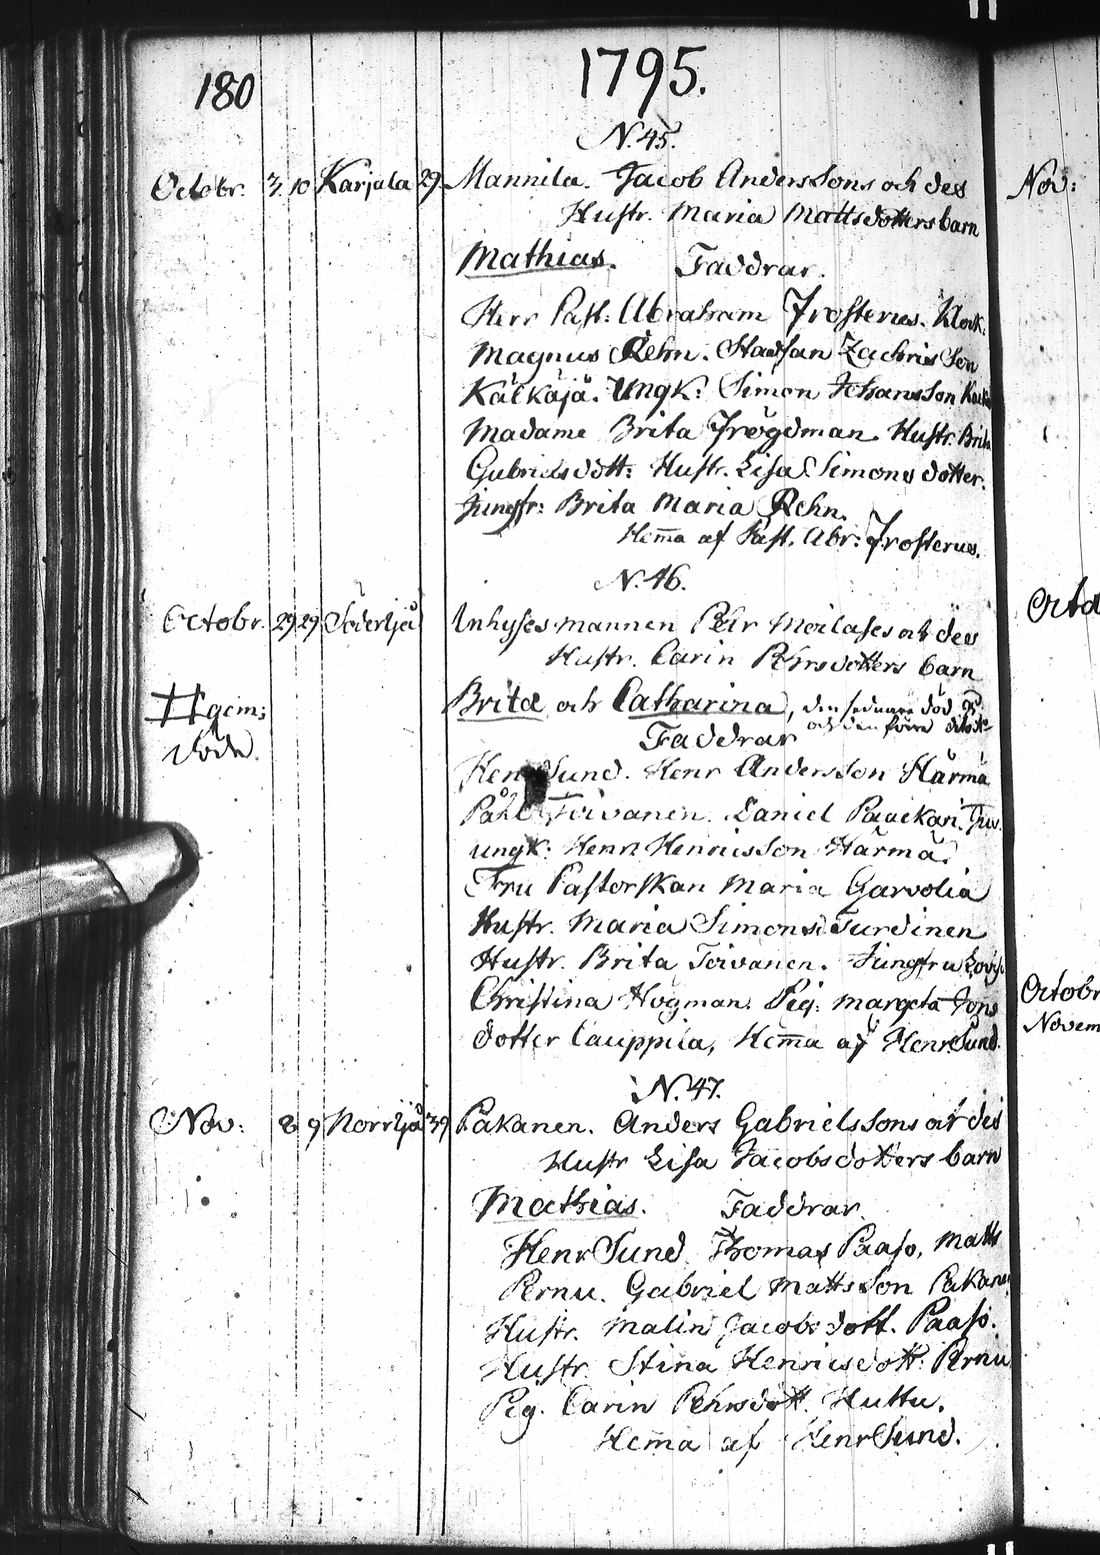 180
1795.
N. 45.
Octobr. 3. 10 Karjala 29 Mannila. Jacob Anderssons och des
Hustr. Maria Mattsdotters barn
Mathias. Faddrar.
Herr Past: Abraham Frosterus. Klock:
Magnus Rehn. Staffan Zachris Son
Kälkäjä. Ungk: Simon Johansson
Madame Brita Frögdman. Hustr. Brita
Gabrielsdott: Hustr. Lisa Simons dotter.
Jungfr: Brita Maria Rehn.
Hem̄a af Past. Abr: Frosterus.
N. 46.
Octobr. 29 29 Söderljä Inhyses mannen Pehr Moilases och des
Hustr. Carin Pehrsdotters barn
# gem: Brita och Catharina, den sednare död
döde. och den förra
Faddrar
Henr Sund. Henr Andersson Härmä
Påhl Toivanen. Daniel Paackari.
ungk: Henr Henricsson Härmä.
Fru Pastorskan Maria Garvolia
Hustr. Maria Simonsd Turdinen
Hustr. Brita Toivanen. Jungfru Lovis
Christina Hogman. Pig: Margeta Jons
dotter Cauppila, Hem̄a af Henr Sund.
N. 47.
Nov: 8 9 Norrljä 39 Pakanen. Anders Gabrielssons och des
Hustr Lisa Jacobsdotters barn
Mathias. Faddrar.
Henr Sund. Thomas Paaso, Matts
Pernu. Gabriel Mattsson Pakanen
Hustr. Malin Jacobsdott. Paaso.
Hustr. Stina Henricsdott: Pernu
Pig. Carin Pehrsdott. Huttu.
Hem̄a af Henr Sund.
Nov:
Octobr
Novem